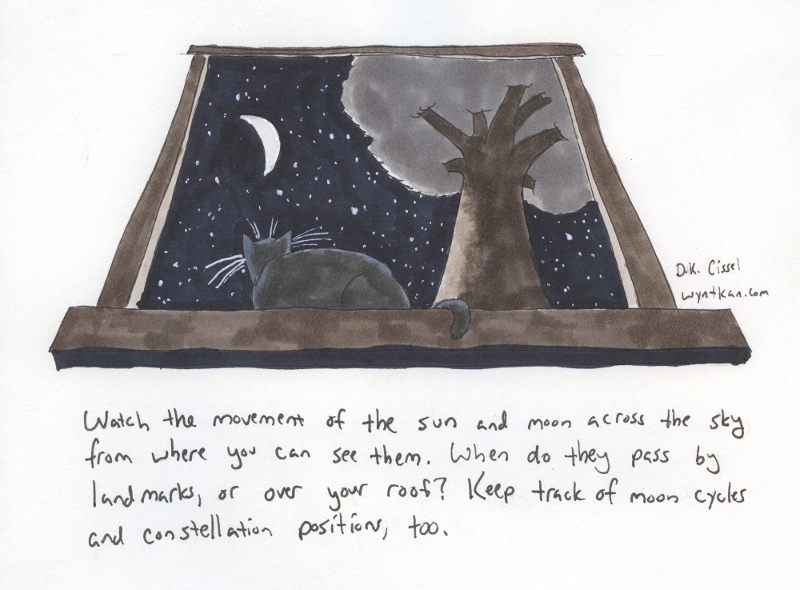 D.K. Cissel
wyntkan.com
Watch the movement of the sun and moon across the sky
from where you can see them. When do they pass by
landmarks, or over your roof? Keep track of moon cycles
and constellation positions, too.